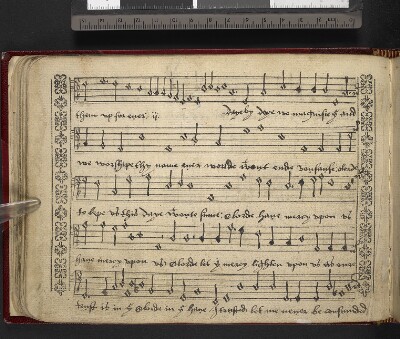 them up for ever ij Daye by daye we magnifie y and
we worshipe thy name ever worlde wont ende vouchsafe
to kepe us this daye wonte sinne O lorde have mercy upon us
have mercy upon us O lorde let y mercy lighten upon us as our
trust is in y O lorde in y have I trusted let me never be confounded